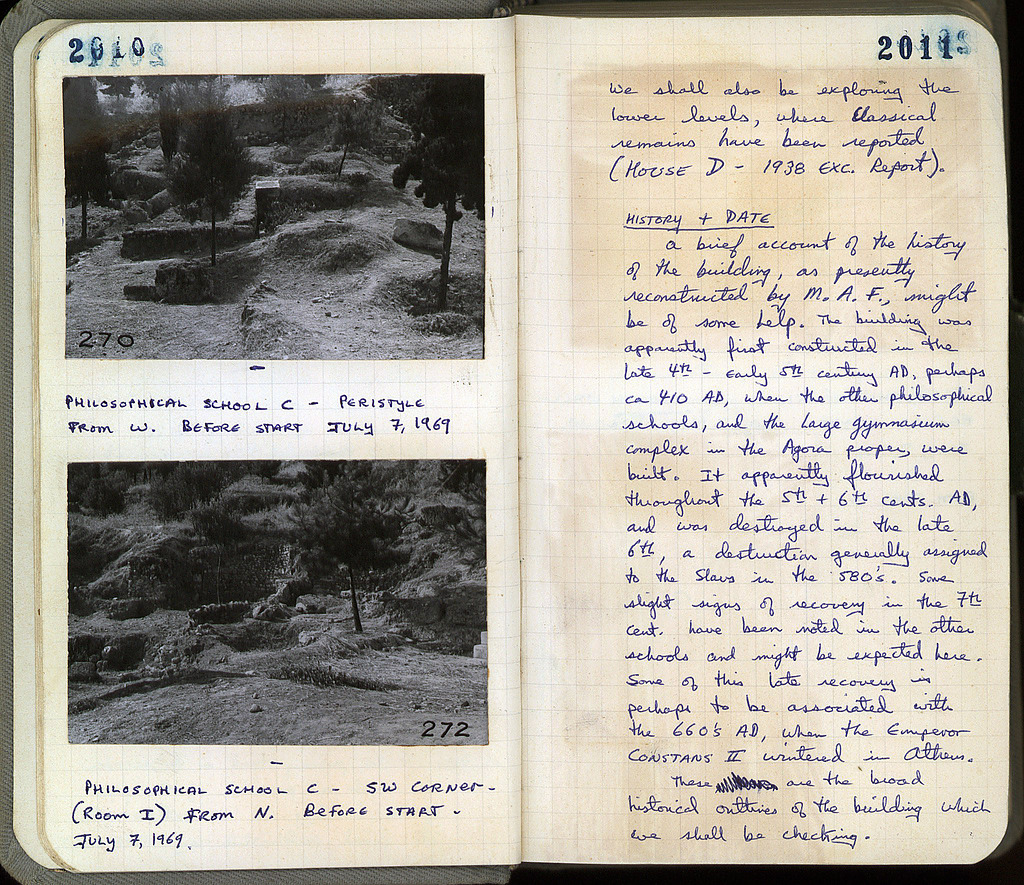 2010
270
PHILOSOPHICAL SCHOOL C - PERISTYLE
FROM W. BEFORE START JULY 7, 1969
272
PHILOSOPHICAL SCHOOL C - SW CORNER -
(ROOM I) FROM N. BEFORE START -
JULY 7, 1969.
2011
we shall also be exploring the
lower levels, where Classical
remains have been reported
(HOUSE D - 1938 EXC. Report).
HISTORY + DATE
a brief account of the history
of the building, as presently
reconstructed by M. A. F., might
be of some help. The building was
apparently first constructed in the
late 4th - early 5th century AD, perhaps
ca 410 AD, when the other philosophical
schools, and the large gymnasium
complex in the Agora proper, were
built. It apparently flourished
throughout the 5th + 6th cents. AD,
and was destroyed in the late
6th, a destruction generally assigned
to the Slavs in the 580's. Some
slight signs of recovery in the 7th
cent. have been noted in the other
schools and might be expected here.
Some of this late recovery is
perhaps to be associated with
the 660's AD, when the Emperor
CONSTANS II wintered in Athens.
These are the broad
historical outlines of the building which
we shall be checking.